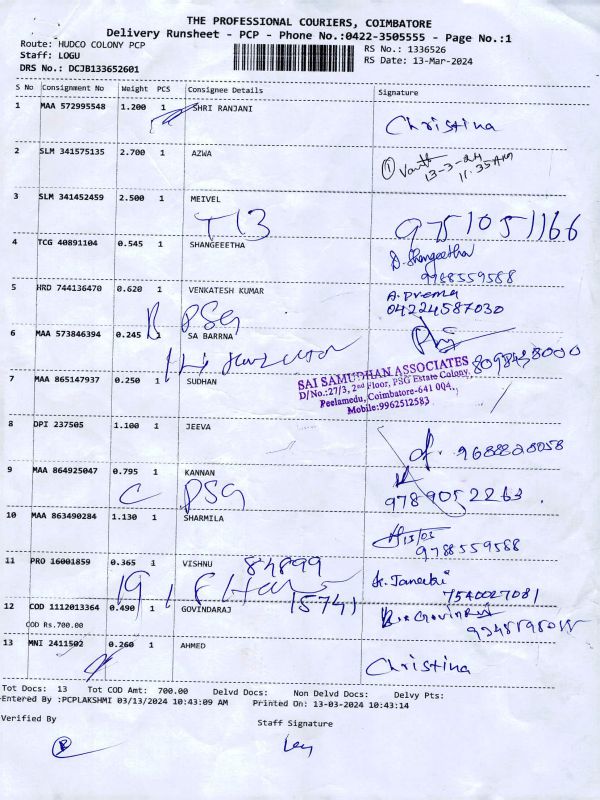 THE PROFESSIONAL COURIERS, COIMBATORE
Delivery Runsheet - PCP - Phone No.:0422-3505555 - Page No.:1
Route: HUDCO COLONY PCP RS No.: 1336526
Staff: LOGU RS Date: 13-Mar-2024
DRS No.: DCJB133652601
S No Consignment No Weight PCS Consignee Details Signature
1 MAA 572995548 1.200 1 SHRI RANJANI
Christina
2 SLM 341575135 2.700 1 AZWA
13-3-24
11.35 AM
3 SLM 341452459 2.500 1 MEIVEL
T13 9751051166
4 TCG 40891104 0.545 1 SHANGEEETHA
D. Shangeetha
9788559588
5 HRD 744136470 0.620 1 VENKATESH KUMAR
A. Prema
04224587030
PSG
6 MAA 573846394 0.245 1 SA BARRNA
SAI SAMUDHAN ASSOCIATES
D/No.:27/3, 2nd Floor, PSG Estate Colony,
Peelamedu, Coimbatore-641 004.
Mobile:9962512583
7 MAA 865147937 0.250 1 SUDHAN
8 DPI 237505 1.100 1 JEEVA
9 MAA 864925047 0.795 1 KANNAN
C PSG 9789052263
10 MAA 863490284 1.130 1 SHARMILA
13/03
9788559588
11 PRO 16001859 0.365 1 VISHNU
84899
K. Janaki
7540027081
19 15741
12 COD 1112013364 0.490 1 GOVINDARAJ
COD Rs.700.00
13 MNI 2411502 0.260 1 AHMED
Christina
Tot Docs: 13 Tot COD Amt: 700.00 Delvd Docs: Non Delvd Docs: Delvy Pts:
Entered By :PCPLAKSHMI 03/13/2024 10:43:09 AM Printed On: 13-03-2024 10:43:14
Verified By Staff Signature